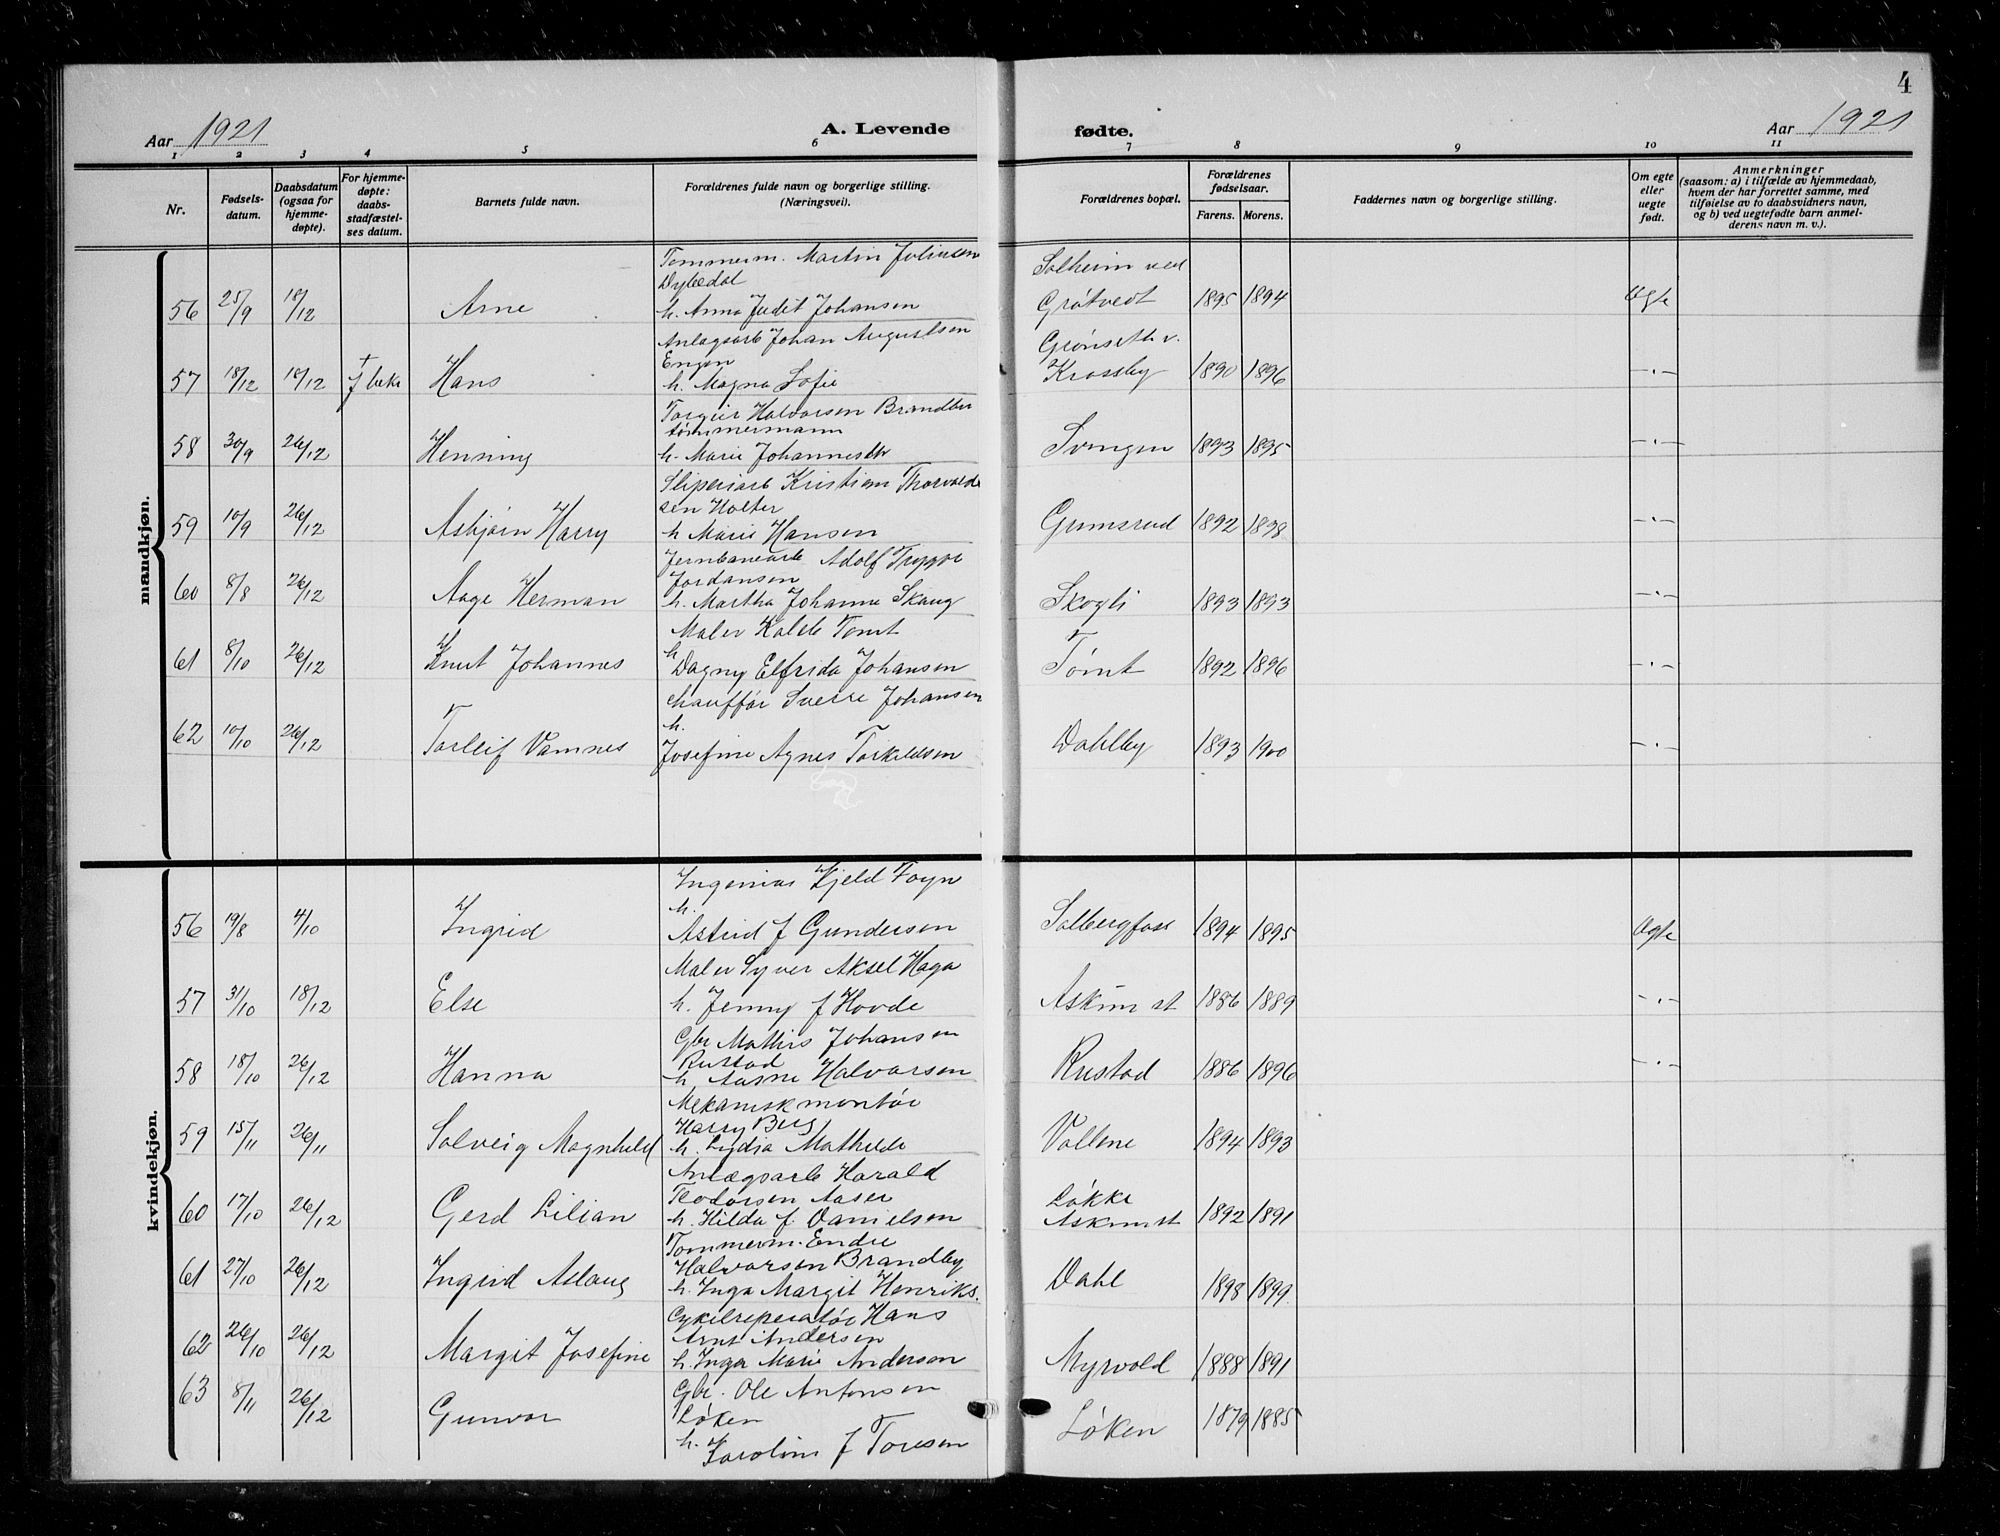 4
Aar 1921
A. Levende
fødte.
Aar 1921
1 2 3 4 5 6 7 8 9 10 11
Nr.
Fødsels-
datum.
Daabsdatum
(ogsaa for
hjemme-
døpte).
For hjemme-
døpte:
daabs-
stadfæstel-
ses datum.
Barnets fulde navn.
Forældrenes fulde navn og borgerlige stilling.
(Næringsvei).
Forældrenes bopæl.
Forældrenes
fødselsaar.
Farens. Morens.
Faddernes navn og borgerlige stilling.
Om egte
eller
uegte
født.
Anmerkninger
(saasom: a) i tilfælde av hjemmedaab,
hvem der har forrettet samme, med
tilføielse av to daabsvidners navn,
og b) ved uegtefødte barn anmel-
derens navn m. v.).
mandkjøn.
Tommerm. Martin Juliusen
Dybedal
Solheim ved
56 25/9 18/12 Arne h. Anna Judit Johansen Grøtvedt 1895 1894 Ægte
Anlagsarb Johan Augustsen
Engen
Grønseth v.
57 18/12 18/12 Hans h. Magna Sofie Krossby 1890 1896 -.-
Torgeir Halvorsen
tømmermann
58 30/9 26/12 Henning h. Marie Svingen 1893 1895 -.-
Sliperiarb Kristian Thorvald
sen Holter
59 10/9 26/12 Asbjørn Harry h Marie Hansen Grimsrud 1892 1898 -.-
Jernbanearb Adolf Trygve
Jordansen
60 8/8 26/12 Aage Herman h. Martha Johanne Skaug Skogli 1893 1893 -.-
Maler Kaleb Tomt
h
61 8/10 26/12 Knut Johannes Dagny Elfrida Johansen Tømt 1892 1896 -.-
chauffør Sverre Johansen
h.
62 10/10 26/12 Torleif Vamnes Josefine Agnes Torkildsen Dahlby 1893 1900 -.-
kvindekjøn.
Ingeniør Kjeld Foyn
h.
56 19/8 4/10 Ingrid Astrid f Gundersen Solbergfoss 1894 1895 Ægte
Maler Syver Aksel Haga
57 31/10 18/12 Else h. Jenny f Hovde Askim st 1886 1889 -.-
Gbr Mathis Johansen
Rustad
58 18/10 26/12 Hanna h. Aasne Halvorsen Rustad 1886 1896 -.-
Mekaniskmontør
Harry Berg
59 15/11 26/11 Solveig Magnhild h. Lydia Mathilde Vollene 1894 1893
Anlægsarb Harald
Teodorsen Aaser
Løkke
60 17/10 26/12 Gerd Lilian h. Hilda f. Danielsen Askim st 1892 1891
Tommerm. Endre
Halvorsen Brandby
61 27/10 26/12 Ingrid Aslaug h. Inga Margit Henriks. Dahl 1898 1899
Cykelreperatør Hans
Arnt Andersen
62 26/10 26/12 Margit Josefine h. Inga Marie Anderson Myrvold 1888 1891
Gbr. Ole Antonsen
Løken
63 8/11 26/12 Gunvor Løken 1879 1885
h. Karoline f Toresen